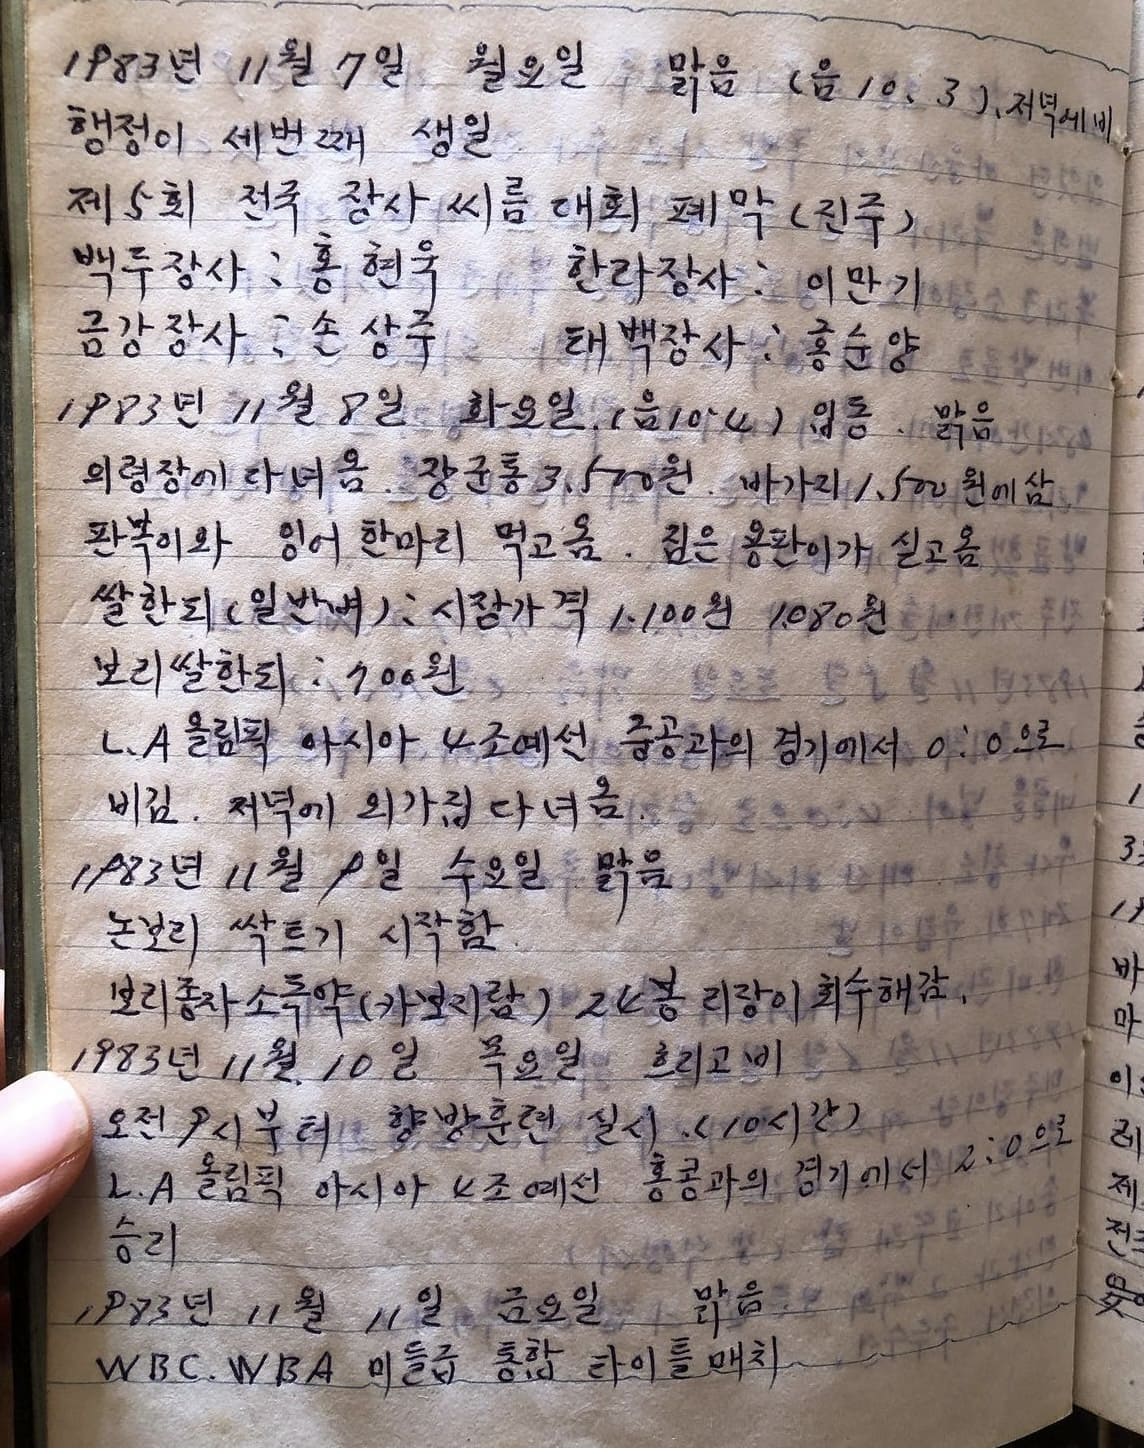 1983년 11월 7일 월요일 맑음 (음 10. 3). 저녁에 비
행정이 세번째 생일
제5회 전국 장사 씨름 대회 폐막 (진주)
백두장사 : 홍현욱 한라장사 : 이만기
금강장사 : 손상주 태백장사 : 홍순양
1983년 11월 8일 화요일. (음10.4) 입동. 맑음
의령장에 다녀옴. 장군통 3.500원. 바가지 1.500원에 삼
판복이와 잉어 한마리 먹고옴. 짐은 용판이가 실고옴
쌀한되(일반벼) : 시장가격 1.100원 1080원
보리쌀한되 : 700원
L.A 올림픽 아시아 4조예선 중공과의 경기에서 0:0으로
비김. 저녁에 외가집 다녀옴.
1983년 11월 9일 수요일 맑음
논보리 싹트기 시작함.
보리종자소독약(카보지람) 24봉 리장이 회수해감.
1983년 11월. 10일 목요일 흐리고 비
오전 9시부터 향방훈련 실시. (10시간)
L.A 올림픽 아시아 4조예선 홍콩과의 경기에서 2:0으로
승리
1983년 11월 11일 금요일 맑음
WBC. WBA 미들급 통합 타이틀매치